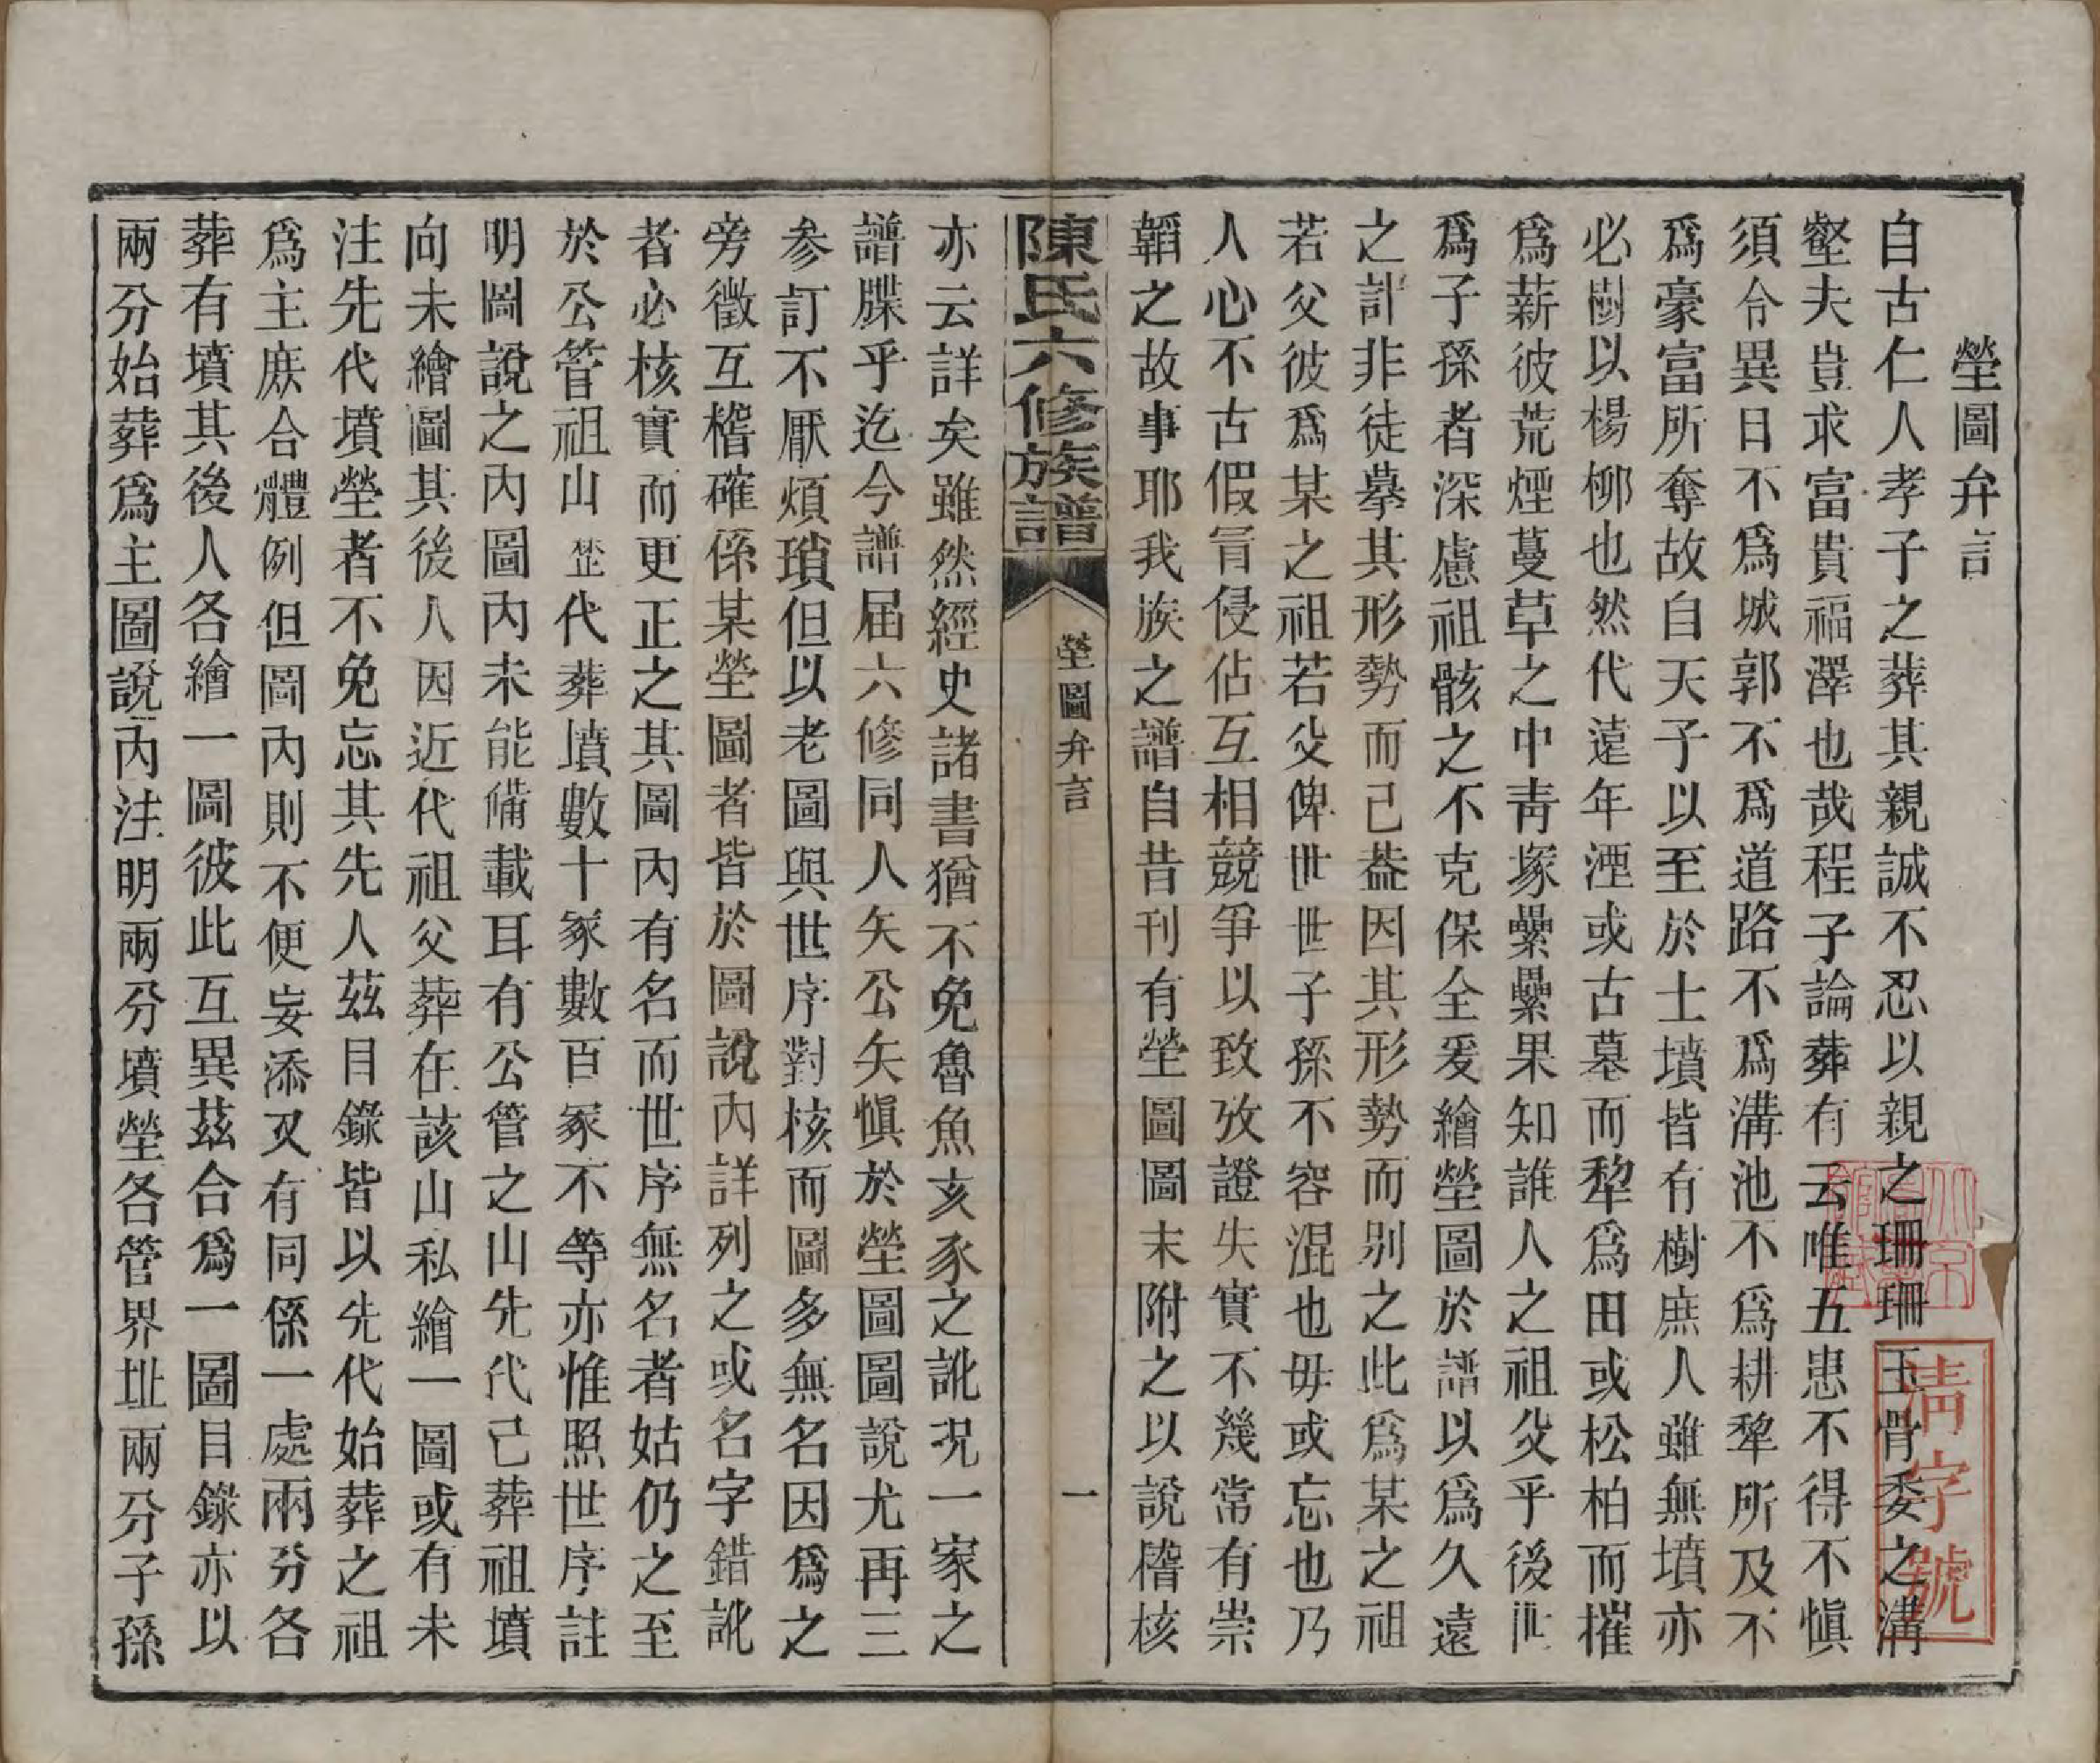 塋圖弁言
自古仁人孝子之葬其親誠不忍以親之珊珊玉骨委之溝
壑夫豈求富貴福澤也哉程子論葬有云唯五患不得不愼
須令異日不爲城郭不爲道路不爲溝池不爲耕犂所及不
爲豪富所奪故自天子以至於士墳皆有樹庶人雖無墳亦
必樹以楊柳也然代遠年湮或古墓而犂爲田或松柏而摧
爲薪彼荒煙蔓草之中靑塚纍纍果知誰人之祖父乎後世
爲子孫者深慮祖骸之不克保全爰繪塋圖於譜以爲久遠
之計非徒摹其形勢而已葢因其形勢而别之此爲某之祖
若父彼爲某之祖若父俾世世子孫不容混也毋或忘也乃
人心不古假冐侵佔互相競爭以致攷證失實不幾常有崇
韜之故事耶我族之譜自昔刊有塋圖圖末附之以說稽核
陳氏六修族譜
塋圖弁言
一
亦云詳矣雖然經史諸書猶不免魯魚亥豕之訛况一家之
譜牒乎迄今譜届六修同人矢公矢愼於塋圖圖說尤再三
参訂不厭煩瑣但以老圖與世序對核而圖多無名因爲之
旁徵互稽確係某塋圖者皆於圖說內詳列之或名字錯訛
者必核實而更正之其圖內有名而世序無名者姑仍之至
於公管祖山歷代葬墳數十冢數百冢不等亦惟照世序註
明圖說之內圖內未能備載耳有公管之山先代已葬祖墳
向未繪圖其後人因近代祖父葬在該山私繪一圖或有未
注先代墳塋者不免忘其先人茲目錄皆以先代始葬之祖
爲主庶合體例但圖內則不便妄添又有同係一處兩分各
葬有墳其後人各繪一圖彼此互異茲合爲一圖目錄亦以
兩分始葬爲主圖說內注明兩分墳塋各管界址兩分子孫
淸字號